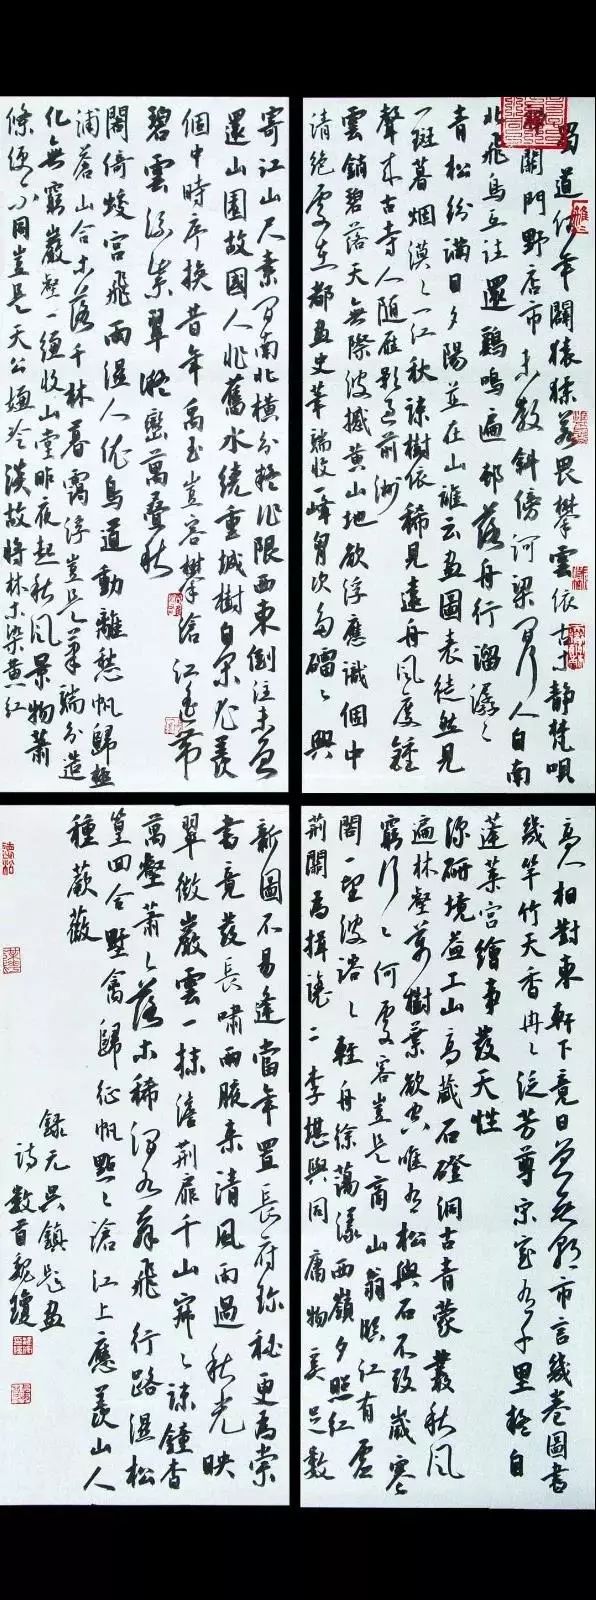 蜀道何年闢猿猱若畏攀雲依古木靜梵唄
關門野店市未散斜傍河梁間行人自南
北飛鳥互往還鷄鳴遍邨落舟行溜潺々
青松紛滿目夕陽並在山誰云畫圖表徒然見
一斑暮烟漠々一江秋疎樹依稀見遠舟風度鍾
聲來古寺人随雁影過前洲
雲銷碧落天無際波撼黄山地欲浮應識個中
清絶處都畫史筆端收一峰胸次多礌々興
寄江山尺素間南北横分非限西東倒注未曾
還山園故國人非舊水繞重城樹自尤羨
個中時序換昔年禹玉豈容攀滄江帶
碧雲流紫翠巒萬疊秋
閣倚蛟宮飛雨濕人依鳥道動離愁帆歸極
浦蒼山合木落千林暮靄浮豈是筆端分造
化無窮巖壑一縑收山堂昨夜起秋風景物蕭
條便不同豈是天公嬾冷淡故將林木染黄紅
高人相對東軒下竟日曾無朝市言幾卷圖書
幾竿竹天香冉々泛芳尊宗家有千里輕自
蓬萊宮繪事發天性
深研境益工山高藏石磴洞古青蒙叢秋風
遍林壑萬樹葉欲空唯有松與石不改歲寒
窮行々何處客豈是商山翁瞰江有虛
閣一望波溶々輕舟徐蕩漾西嶺夕照紅
荊關為揖讓二李堪與同庸物奚足數
新圖不易逢當年置長府珍秘更為崇
書竟發長嘯兩腋來清風雨過秋光映
翠微巖雲一抹澹荊扉千山寂々疎鐘杳
萬壑蕭々落木稀澗飛行路濕松
篁四合野禽歸征帆點々滄江上應羨山人
種蕨薇
録元吳鎮題畫
詩數首魏瓊